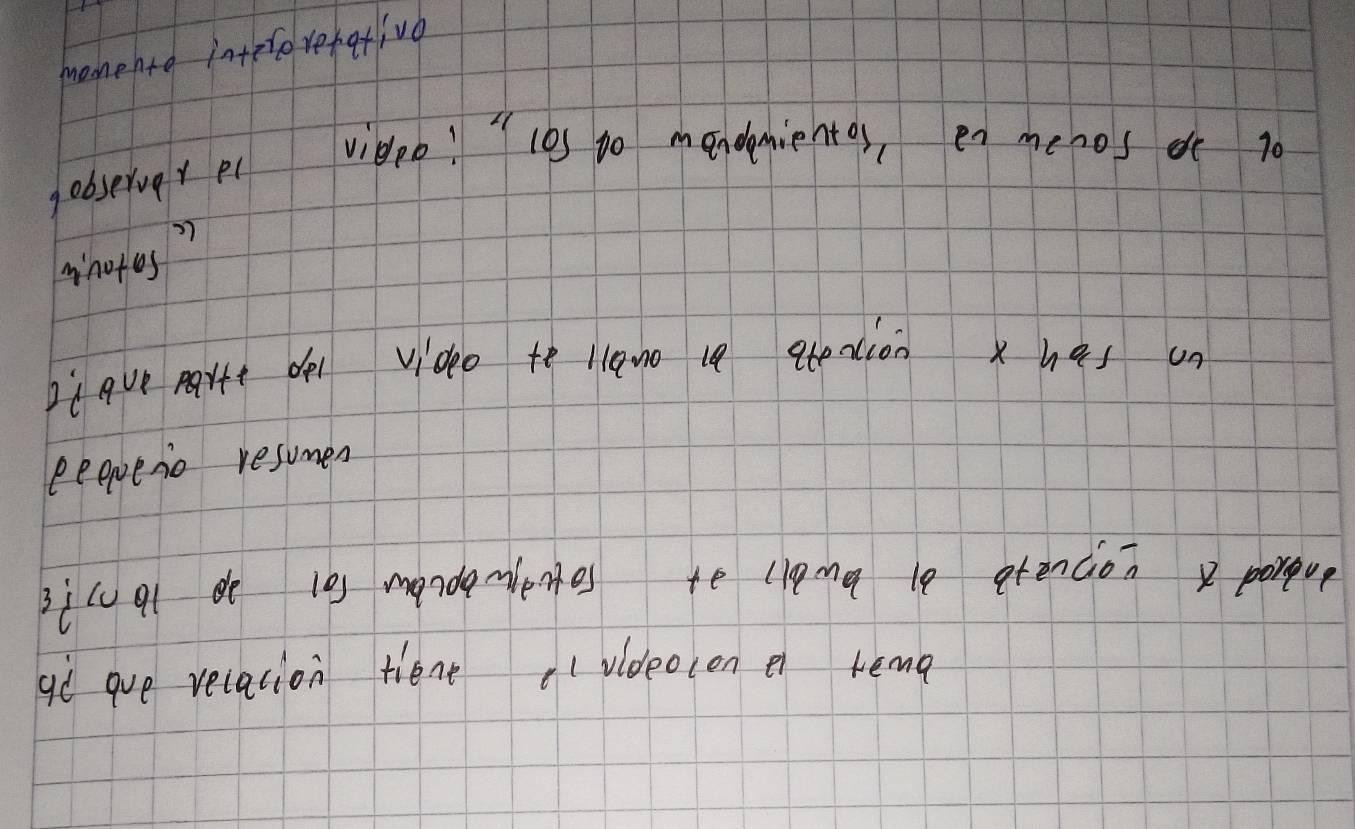 momento interpretativo
1 observar el video: "los 10 mandamientos, en menos de 10
minutos"
2 ¿que parte del video te llamo la atención x has un
pequeño resumen
3 ¿cual de los mandamientos te llama la atención x porque
4 ¿ que relación tiene el video con el tema